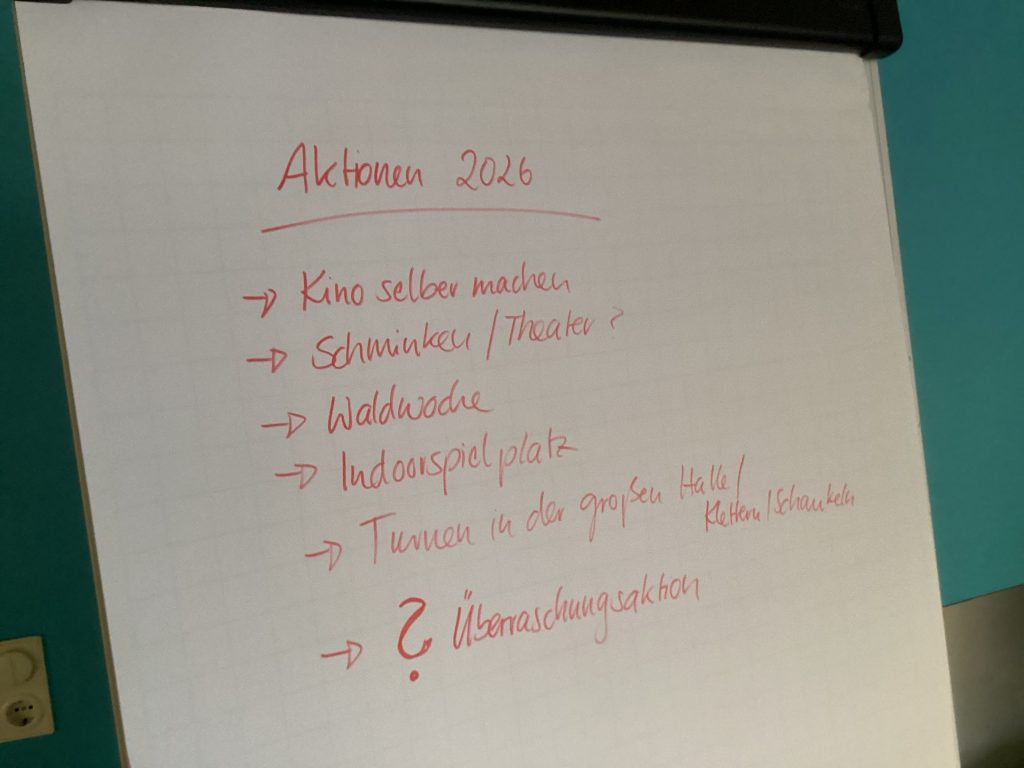 Aktionen 2026
→ Kino selber machen
→ Schminken / Theater ?
→ Waldwoche
→ Indoorspielplatz
→ Turnen in der großen Halle /
Klettern / Schaukeln
→ ? Überraschungsaktion